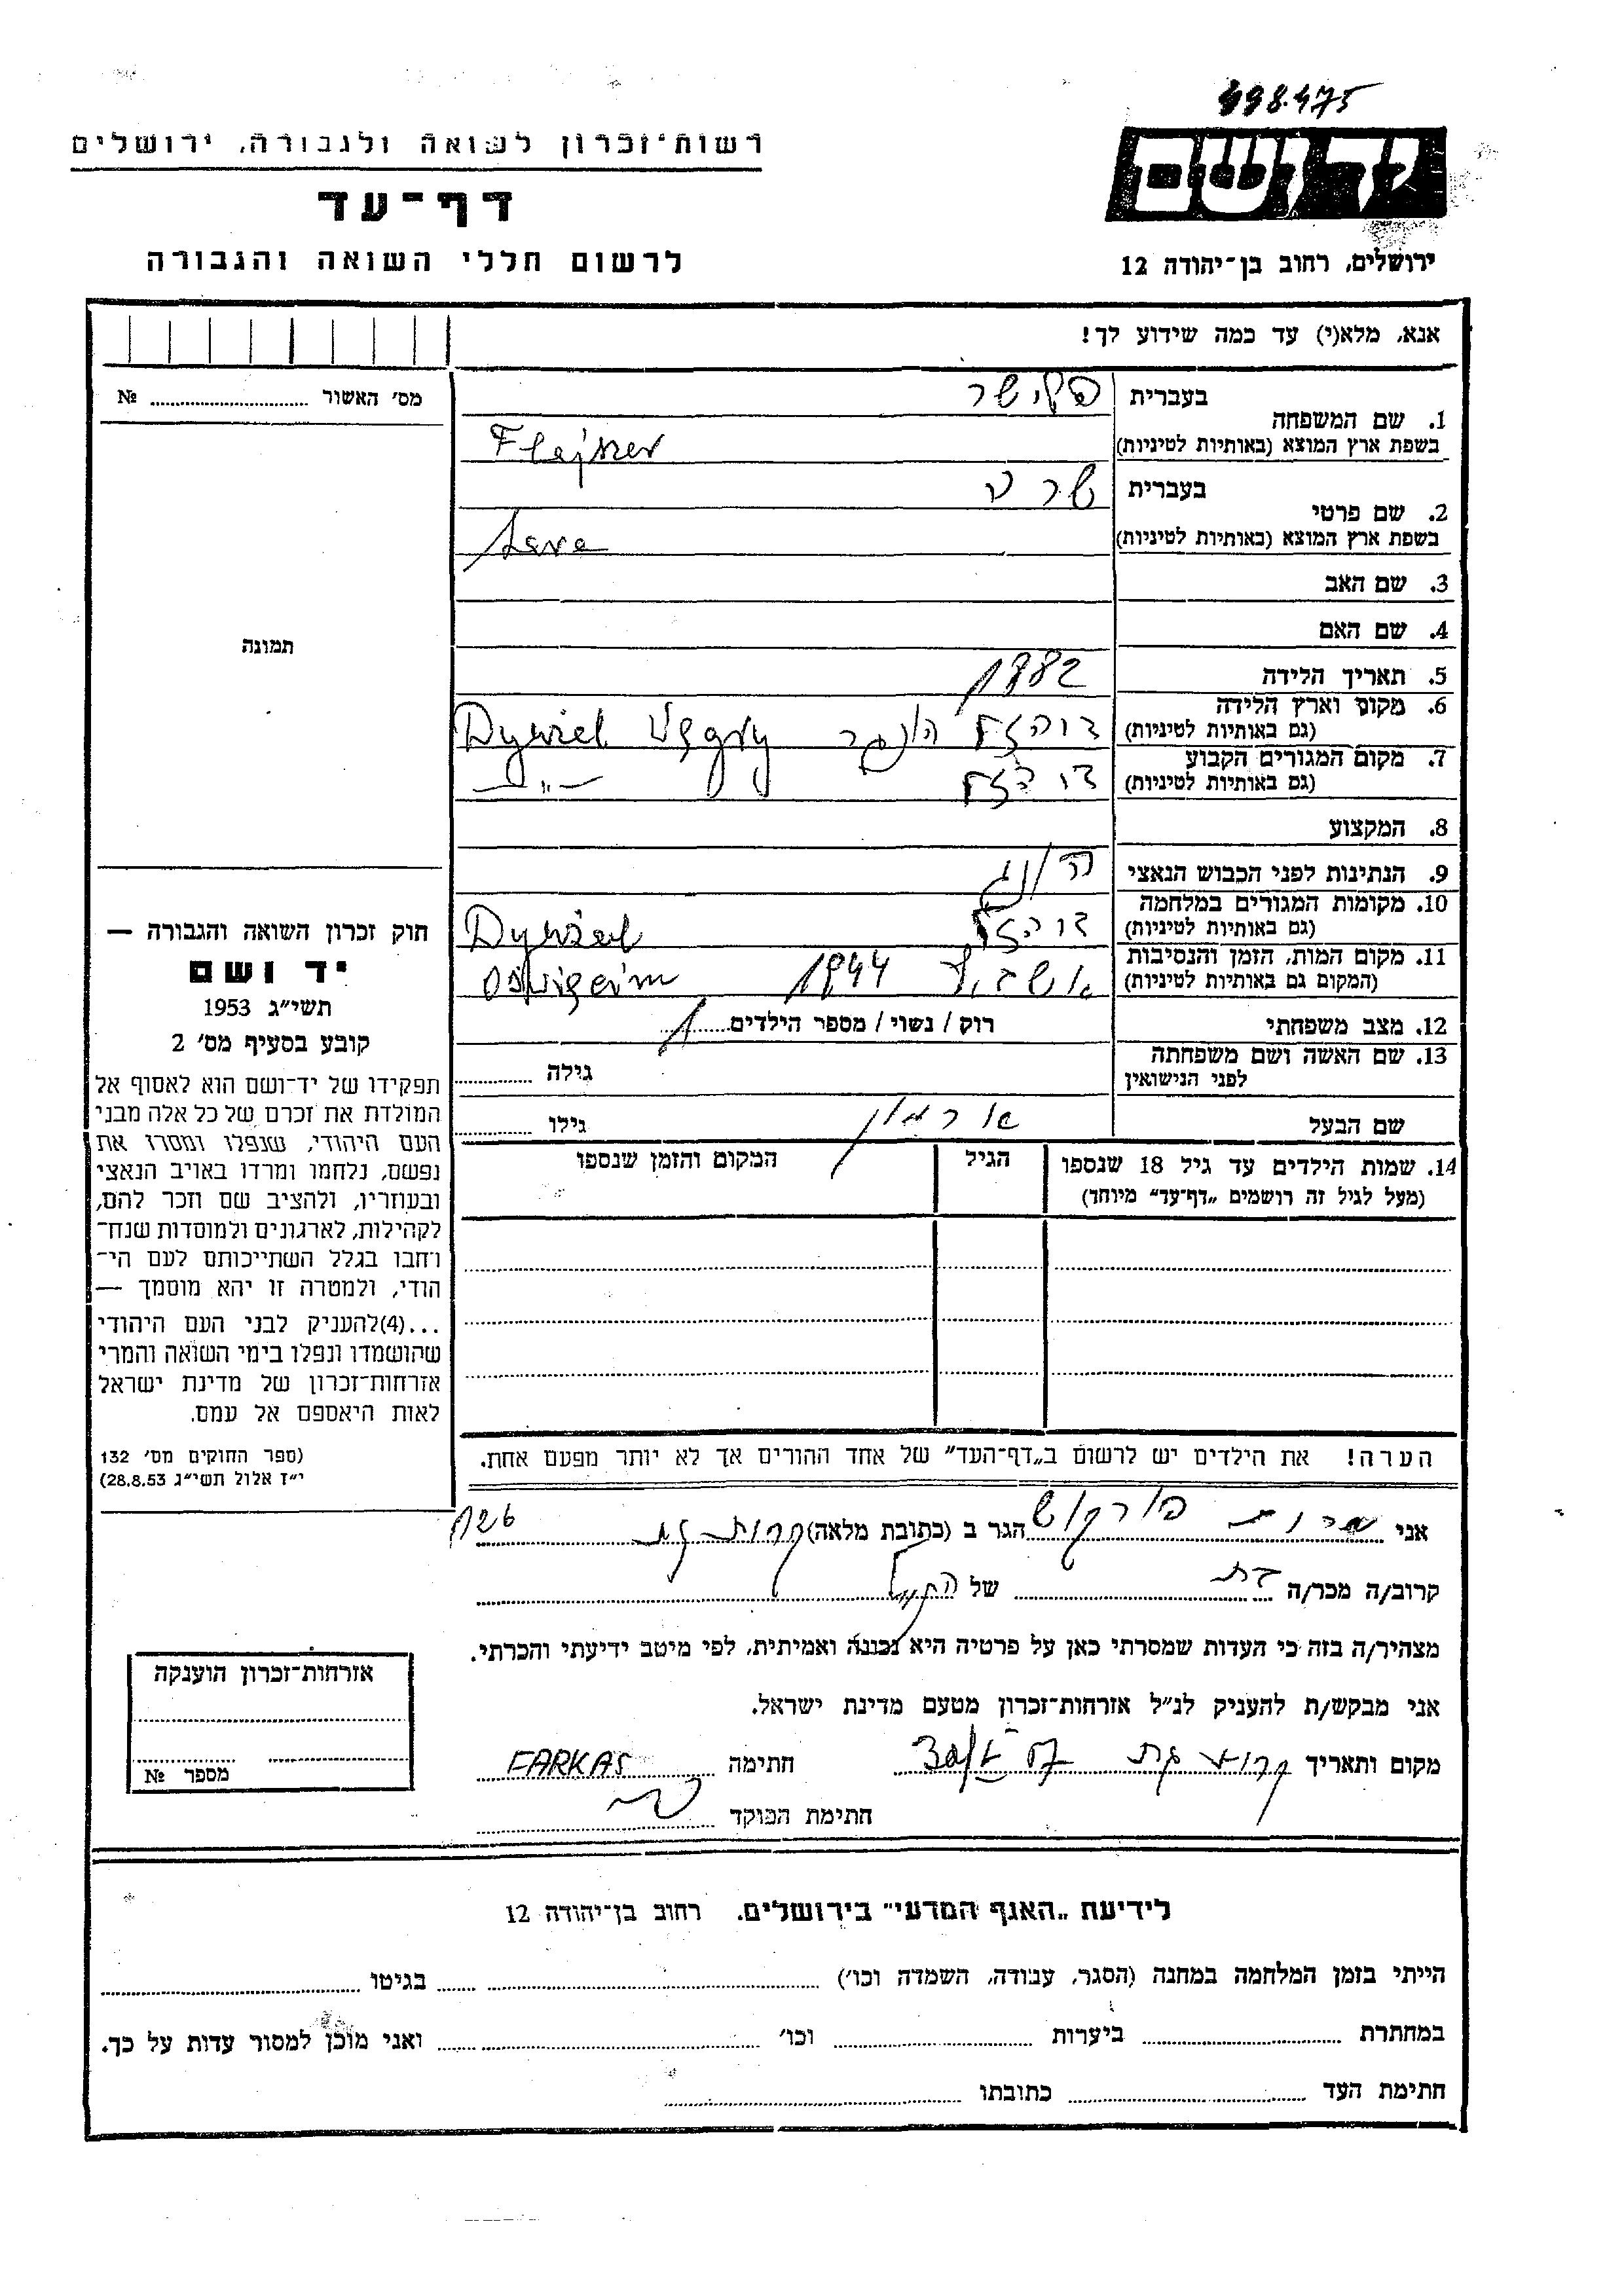 498.475
רשות־זכרון לשואה ולגבורה, ירושלים
יד ושם
דף־עד
לרשום חללי השואה והגבורה
ירושלים, רחוב בן־יהודה 12
אנא, מלא(י) עד כמה שידוע לך!
מס׳ האשור № 
בעברית
1. שם המשפחה
בשפת ארץ המוצא (באותיות לטיניות)
Flejszer
בעברית שרה
2. שם פרטי
בשפת ארץ המוצא (באותיות לטיניות)
3. שם האב
4. שם האם
תמונה
5. תאריך הלידה 1882
6. מקום וארץ הלידה
(גם באותיות לטיניות)
7. מקום המגורים הקבוע
(גם באותיות לטיניות) —„—
8. המקצוע
9. הנתינות לפני הכבוש הנאצי
10. מקומות המגורים במלחמה
(גם באותיות לטיניות)
11. מקום המות, הזמן והנסיבות
(המקום גם באותיות לטיניות) 1944
12. מצב משפחתי רוק / נשוי / מספר הילדים 1
13. שם האשה ושם משפחתה
לפני הנישואין גילה
שם הבעל גילו
14. שמות הילדים עד גיל 18 שנספו
(מעל לגיל זה רושמים „דף־עד״ מיוחד)
הגיל
המקום והזמן שנספו
חוק זכרון השואה והגבורה —
יד ושם
תשי״ג 1953
קובע בסעיף מס׳ 2
תפקידו של יד־ושם הוא לאסוף אל
המולדת את זכרם של כל אלה מבני
העם היהודי, שנפלו ומסרו את
נפשם, נלחמו ומרדו באויב הנאצי
ובעוזריו, ולהציב שם וזכר להם,
לקהילות, לארגונים ולמוסדות שנח־
רבו בגלל השתייכותם לעם הי־
הודי, ולמטרה זו יהא מוסמך —
...(4)להעניק לבני העם היהודי
שהושמדו ונפלו בימי השואה והמרי
אזרחות־זכרון של מדינת ישראל
לאות היאספם אל עמם.
(ספר החוקים מס׳ 132
י״ז אלול תשי״ג 28.8.53)
הערה! את הילדים יש לרשום ב„דף־העד״ של אחד ההורים אך לא יותר מפעם אחת.
אני הגר ב (כתובת מלאה) קרית גת
קרוב/ה מכר/ה של
מצהיר/ה בזה כי העדות שמסרתי כאן על פרטיה היא נכונה ואמיתית, לפי מיטב ידיעתי והכרתי.
אני מבקש/ת להעניק לנ״ל אזרחות־זכרון מטעם מדינת ישראל.
מקום ותאריך חתימה FARKAS
חתימת הפוקד
אזרחות־זכרון הוענקה
מספר №
לידיעת „האגף המדעי״ בירושלים, רחוב בן־יהודה 12
הייתי בזמן המלחמה במחנה (הסגר, עבודה, השמדה וכו׳) בגיטו
במחתרת ביערות וכו׳ ואני מוכן למסור עדות על כך.
חתימת העד כתובתו